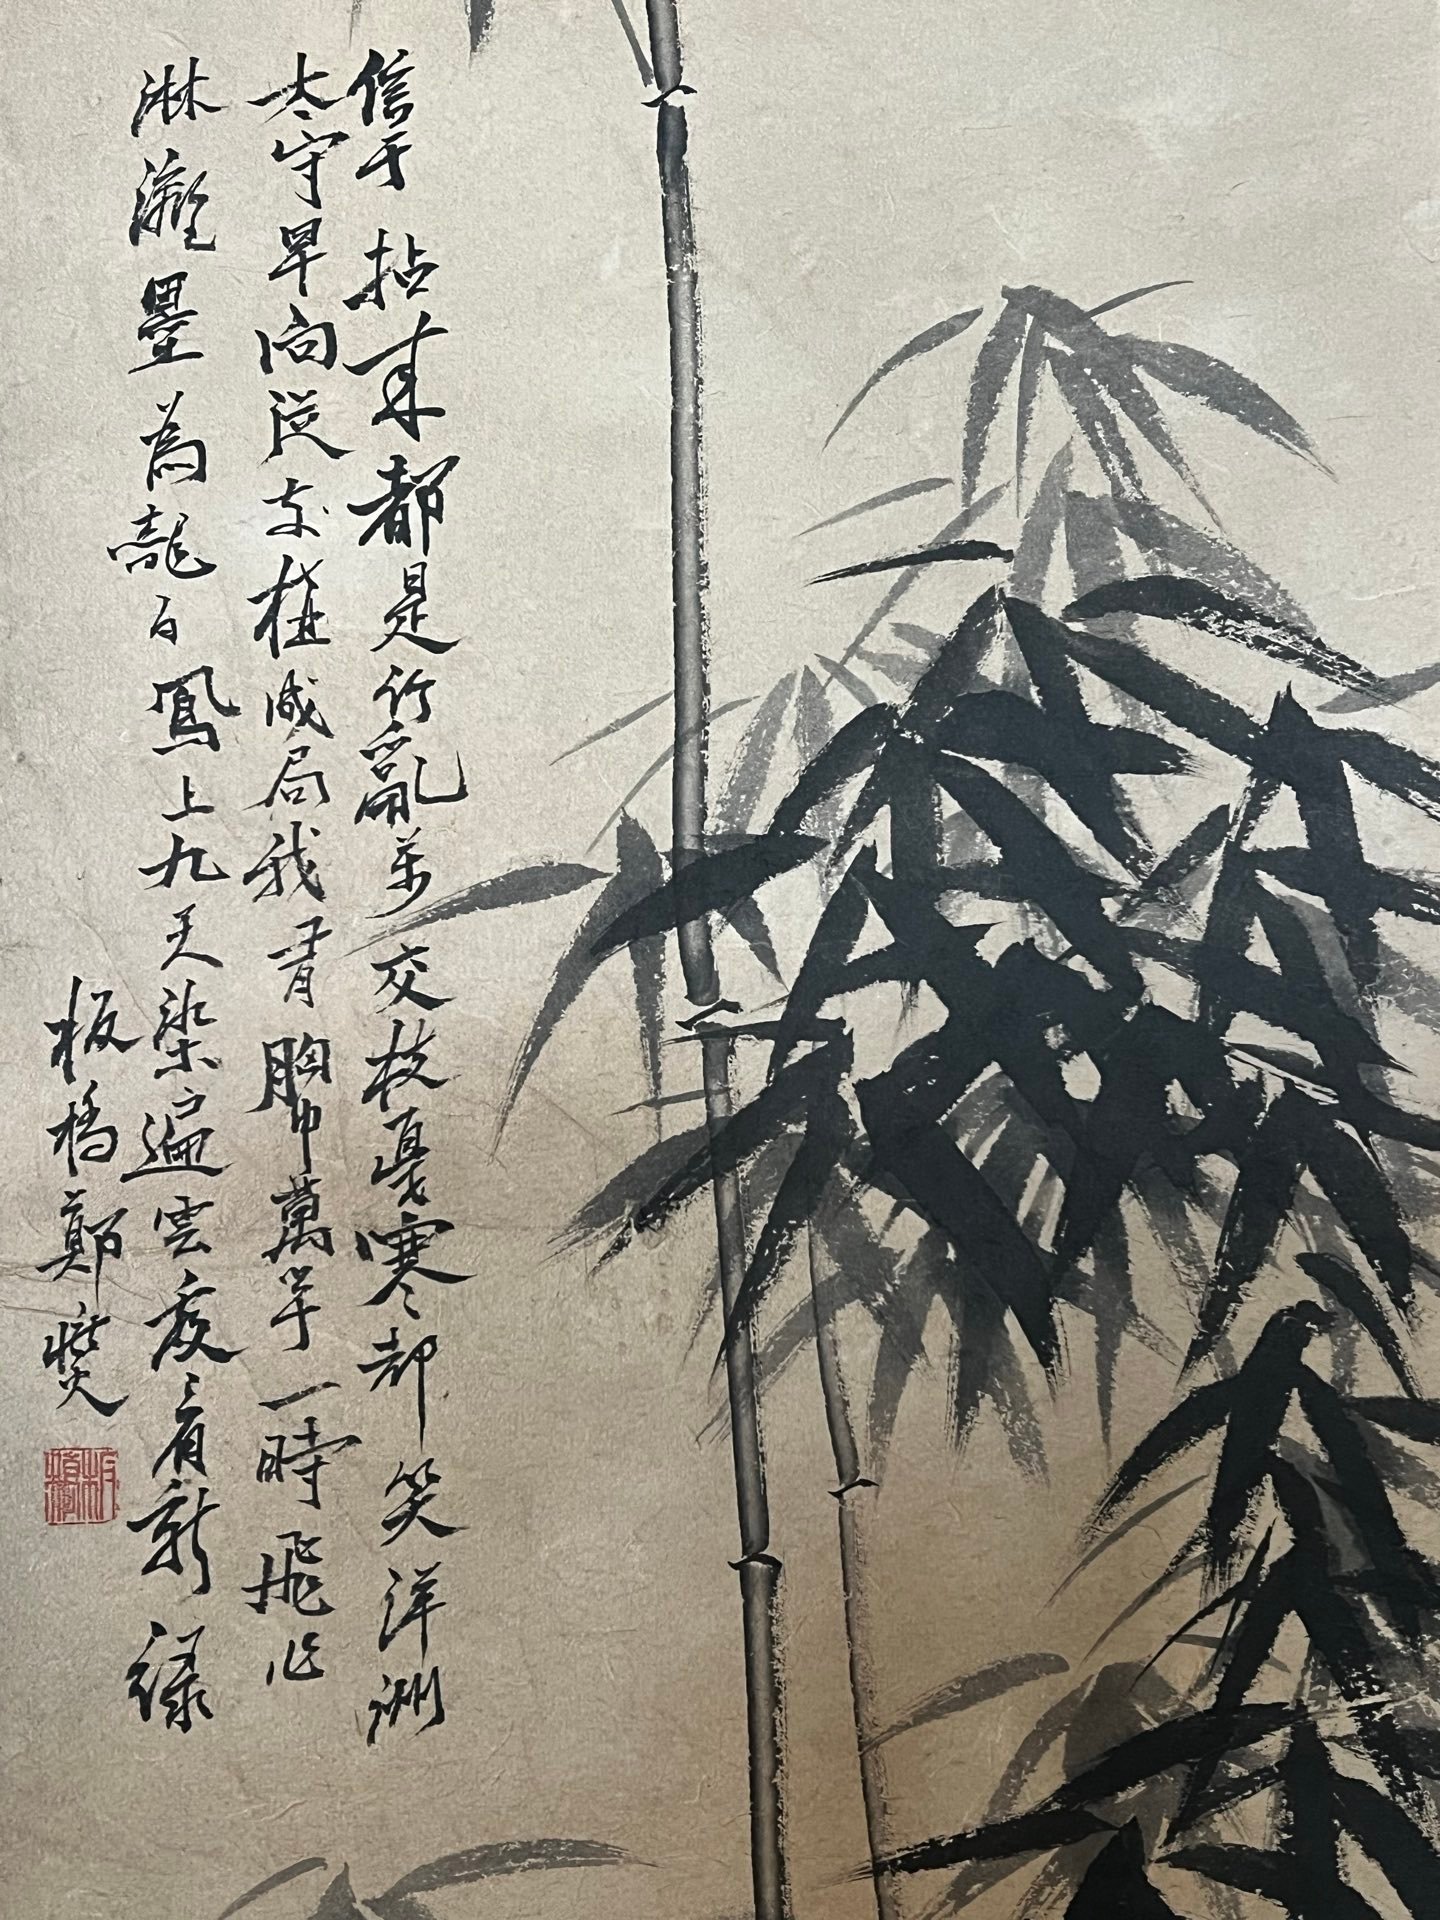 信手拈来都是竹亂葉交枝戛寒却笑洋洲
太守早向從前構成局我有胸中萬竿一時飛作
淋漓墨為龍為鳳上九天染遍雲霞看新綠
板橋鄭燮
板橋